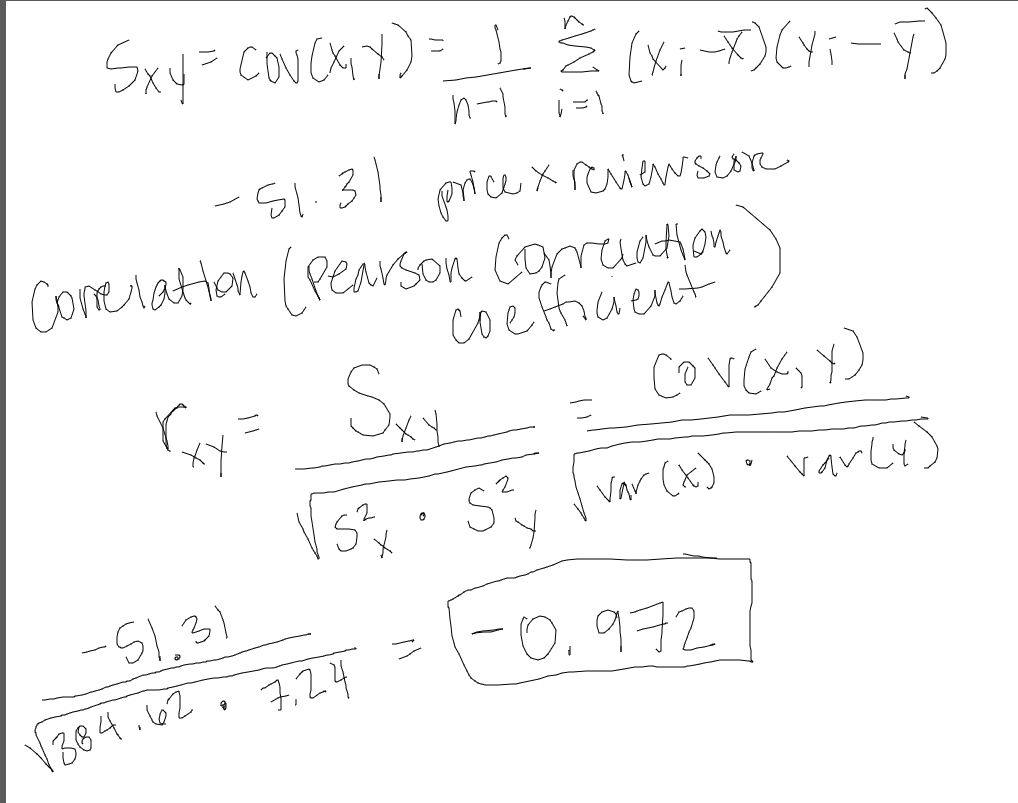 Sxy = cov(x,y) = 1/(n-1) Σ_{i=1}^{n} (xi - x̄)(yi - ȳ)
-51.31 price x review score
Correlation (Pearson Correlation
coefficient)
r_xy = S_xy / √(S²_x · S²_y) = Cov(x,y) / √(var(x) · var(y))
-51.31 / √(384.62 · 7.24) = -0.972